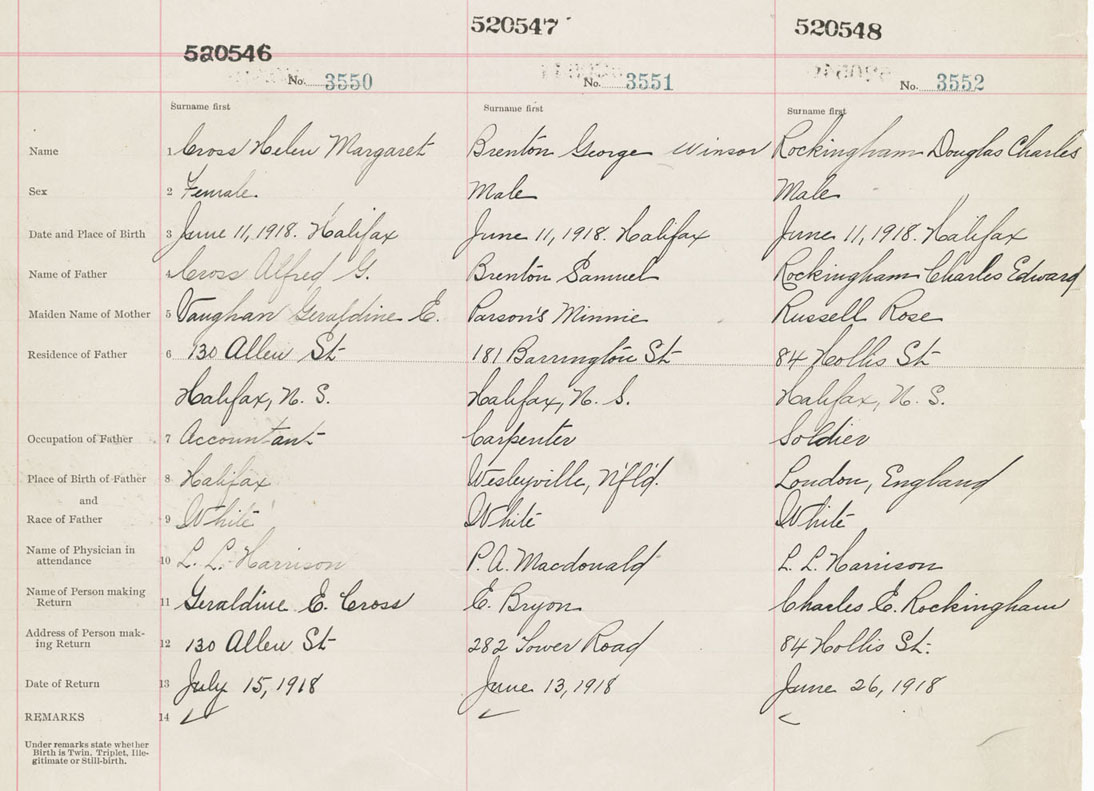 520546 520547 520548
No. 3550 No. 3551 No. 3552
Surname first Surname first Surname first
Name 1 Cross Helen Margaret Brenton George Winsor Rockingham Douglas Charles
Sex 2 Female. Male Male
Date and Place of Birth 3 June 11, 1918. Halifax June 11, 1918. Halifax June 11, 1918. Halifax
Name of Father 4 Cross Alfred G. Brenton Samuel Rockingham Charles Edward
Maiden Name of Mother 5 Vaughan Geraldine E. Parson's Minnie Russell Rose
Residence of Father 6 130 Allen St 181 Barrington St 84 Hollis St
Halifax, N. S. Halifax, N. S. Halifax, N. S.
Occupation of Father 7 Accountant Carpenter Soldier
Place of Birth of Father 8 Halifax Wesleyville, N'f'ld. London, England
and
Race of Father 9 White White White
Name of Physician in
attendance 10 L. L. Harrison P. A. Macdonald L. L. Harrison
Name of Person making
Return 11 Geraldine E. Cross E. Bryon Charles E. Rockingham
Address of Person mak-
ing Return 12 130 Allen St 282 Tower Road 84 Hollis St.
Date of Return 13 July 15, 1918 June 13, 1918 June 26, 1918
REMARKS 14
Under remarks state whether
Birth is Twin, Triplet, Ille-
gitimate or Still-birth.